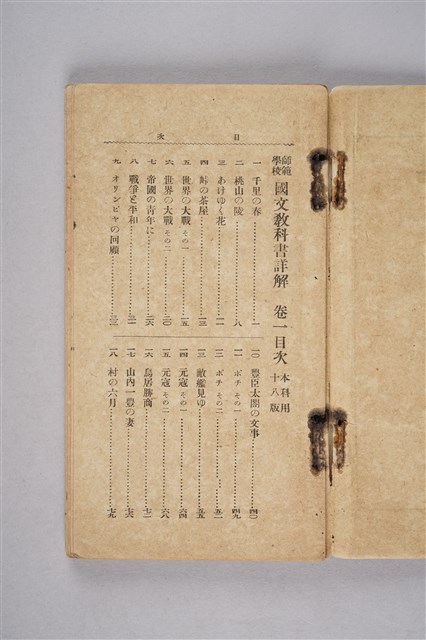 目次
師範學校 國文教科書詳解 卷一目次 本科用 十八版
一 千里の春……一
二 桃山の陵……八
三 あけゆく花……一一
四 峠の茶屋……一三
五 世界の大戰 その一……一五
六 世界の大戰 その二……二〇
七 帝國の靑年に……二六
八 戰爭と平和……三一
九 オリンピヤの回顧……三三
一〇 豐臣太閤の文事……四〇
一一 ポチ その一……四九
一二 ポチ その二……五一
一三 敵艦見ゆ……五五
一四 元寇 その一……六四
一五 元寇 その二……六八
一六 鳥居勝商……七二
一七 山內一豐の妻……七六
一八 村の六月……七九